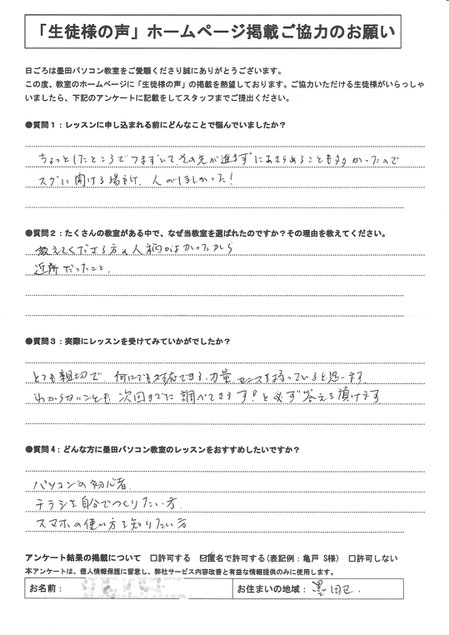 「生徒様の声」ホームページ掲載ご協力のお願い
日ごろは墨田パソコン教室をご愛顧くださり誠にありがとうございます。
この度、教室のホームページに「生徒様の声」の掲載を熱望しております。ご協力いただける生徒様がいらっしゃ
いましたら、下記のアンケートに記載をしてスタッフまでご提出ください。
●質問1：レッスンに申し込まれる前にどんなことで悩んでいましたか？
ちょっとしたところでつまずいてその先が進まずにあきらめることも多かったので
スグに聞ける場所、人がほしかった！
●質問2：たくさんの教室がある中で、なぜ当教室を選ばれたのですか？その理由を教えてください。
教えてくださる方の人柄がよかったから
近所だったこと、
●質問3：実際にレッスンを受けてみていかがでしたか？
とても親切で、何にでも対応できる力量、センスを持っていると思います。
わからないことも 次回までに調べてきます！と必ず答えを頂けます
●質問4：どんな方に墨田パソコン教室のレッスンをおすすめしたいですか？
パソコンの初心者
チラシを自分でつくりたい方
スマホの使い方を知りたい方
アンケート結果の掲載について □許可する ☑匿名で許可する(表記例：亀戸 S様) □許可しない
本アンケートは、個人情報保護に留意し、弊社サービス内容改善と有益な情報提供のみに使用します。
お名前： お住まいの地域：墨田区